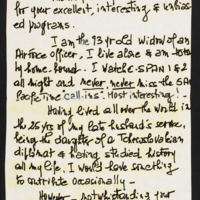 for your excellent, interesting & unbiased
programs.
I am the 93 yr old widow of an
Air Force officer. I live alone & am
by home bound. I watch C-SPAN 1 & 2
all night and never, never miss the 5 AM
people time "call-ins". Most interesting! -
Having lived all over the world in
the 25 yrs of my late husband's service,
being the daughter of a Czechoslovakian
diplomat & having studied history
all my life. I would love something
to contribute occasionally -
However - notwithstanding your